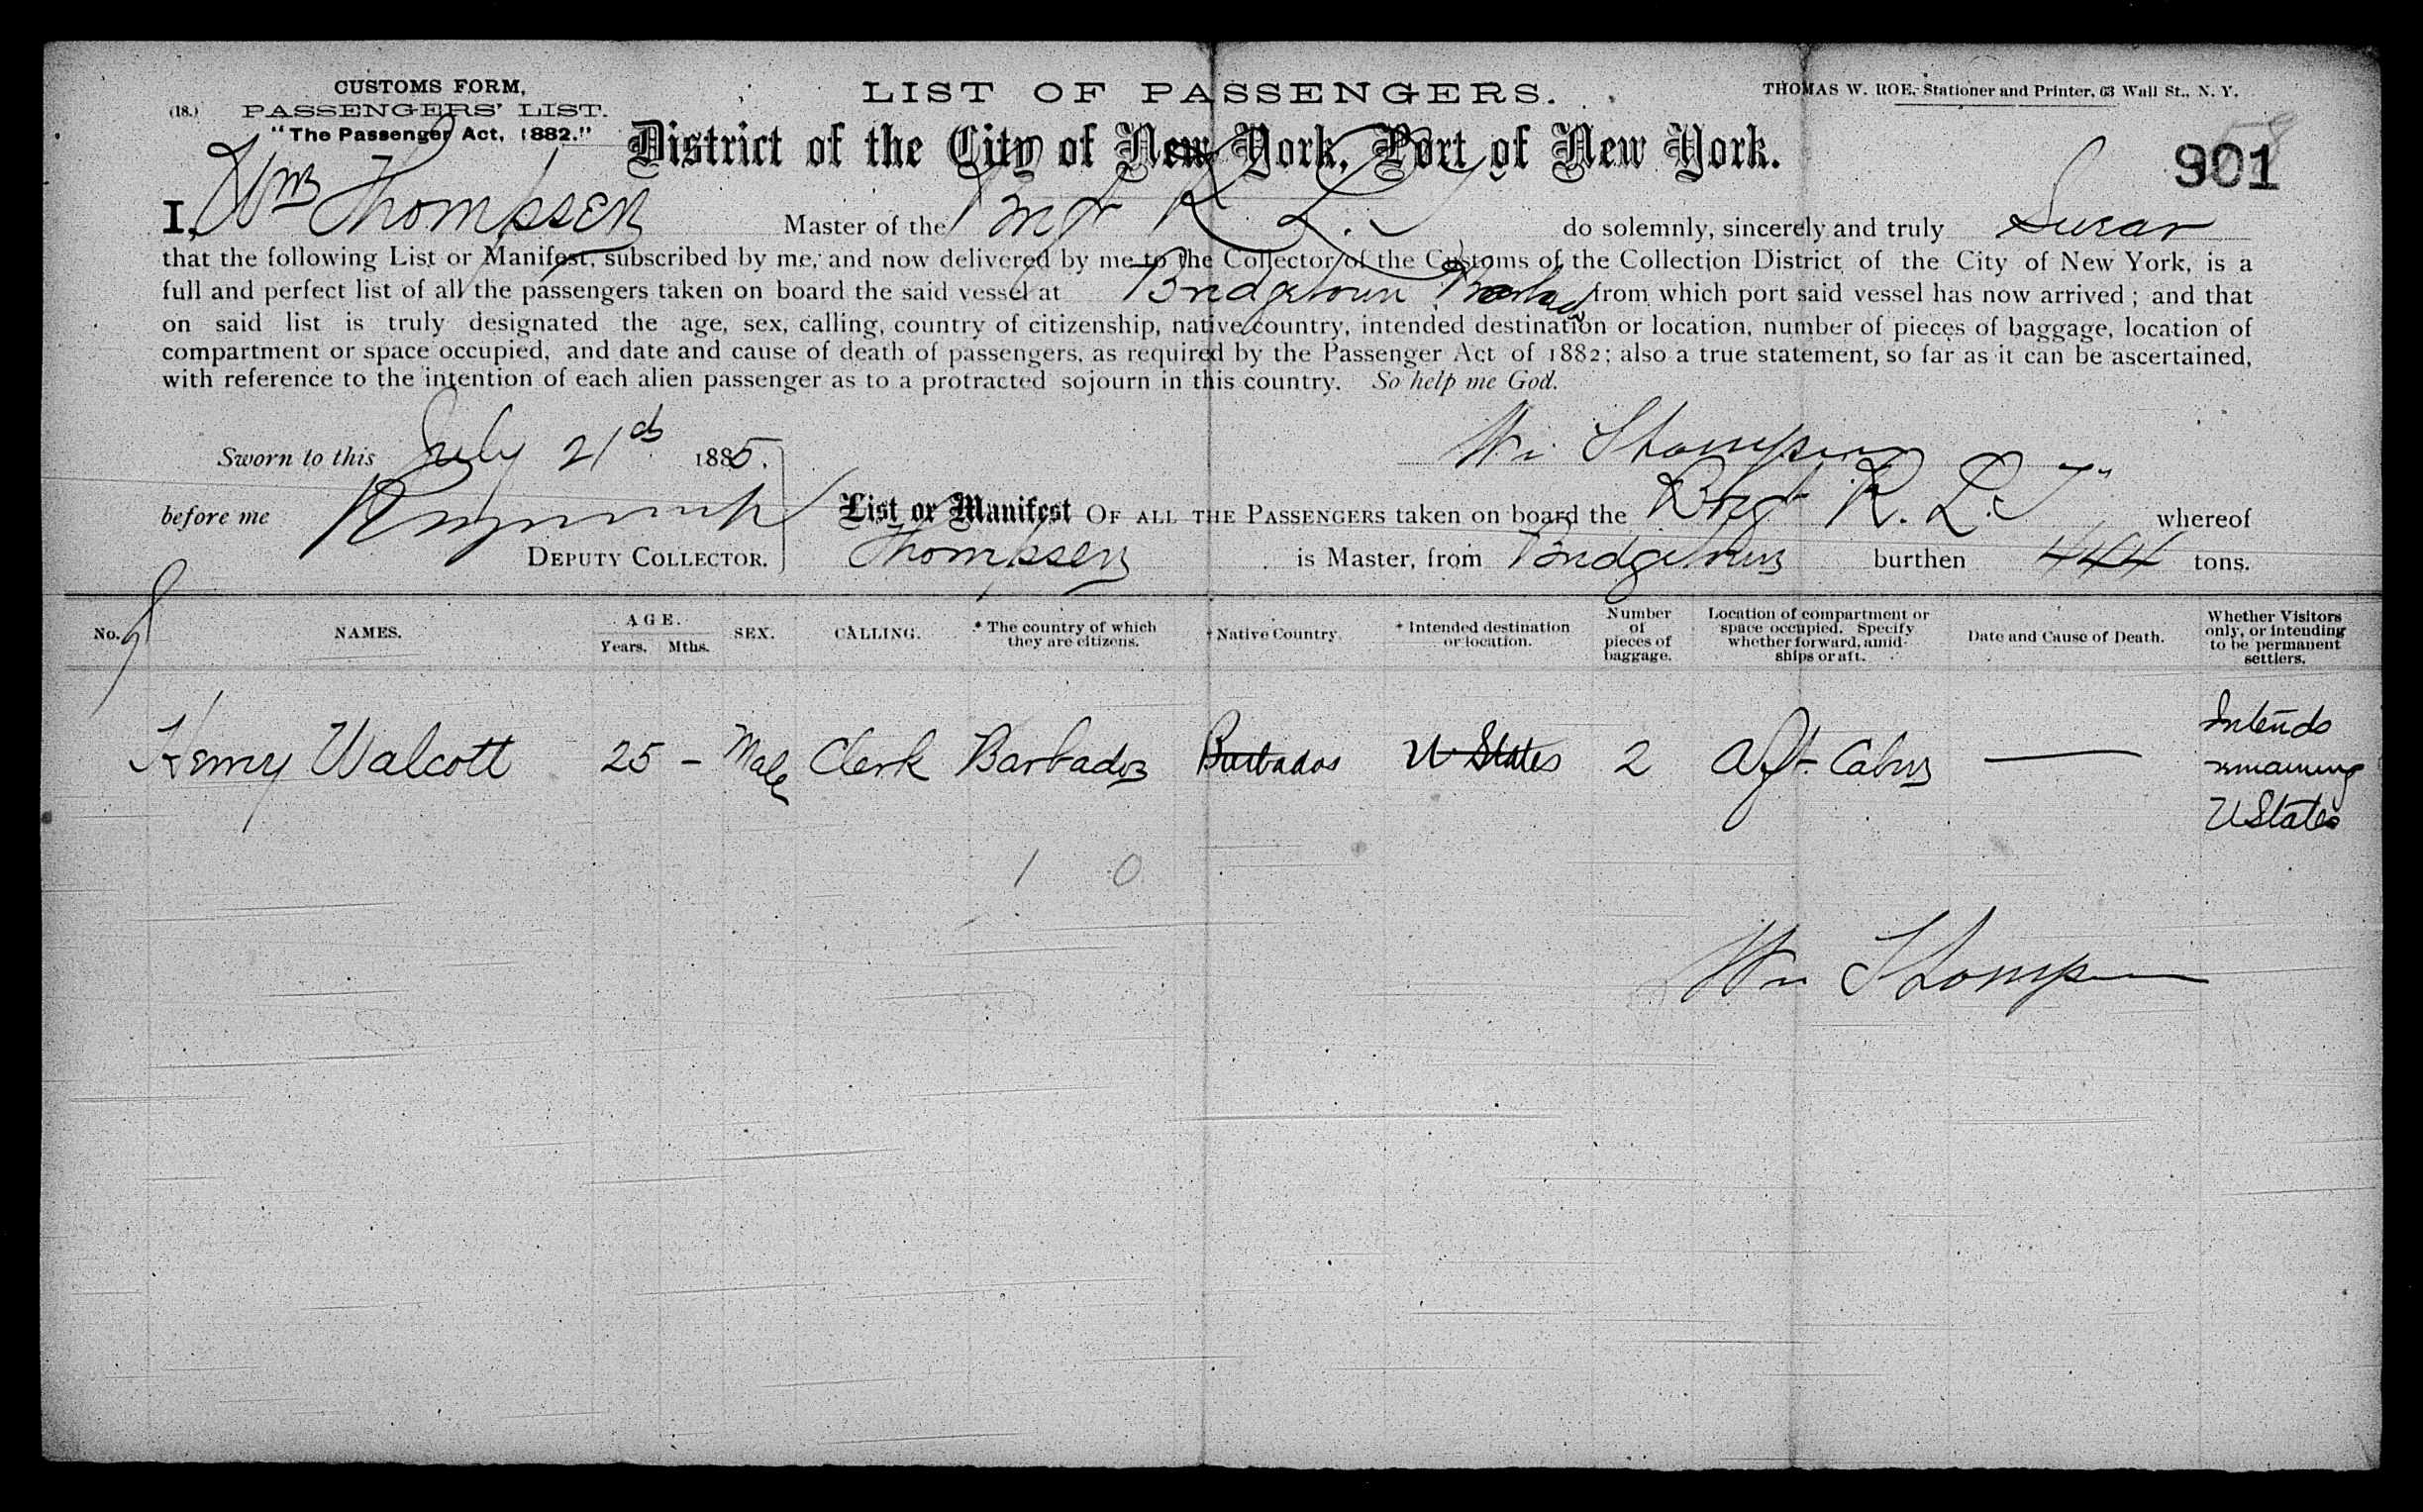 CUSTOMS FORM,
(18.) PASSENGERS' LIST.
"The Passenger Act, 1882."
LIST OF PASSENGERS.
THOMAS W. ROE, Stationer and Printer, 63 Wall St., N. Y.
District of the City of New York, Port of New York.
901
I, Wm Thompson Master of the Brgt R. L. T do solemnly, sincerely and truly Swear
that the following List or Manifest, subscribed by me, and now delivered by me to the Collector of the Customs of the Collection District of the City of New York, is a
full and perfect list of all the passengers taken on board the said vessel at Bridgetown Barbados from which port said vessel has now arrived; and that
on said list is truly designated the age, sex, calling, country of citizenship, native country, intended destination or location, number of pieces of baggage, location of
compartment or space occupied, and date and cause of death of passengers, as required by the Passenger Act of 1882; also a true statement, so far as it can be ascertained,
with reference to the intention of each alien passenger as to a protracted sojourn in this country. So help me God.
Sworn to this July 21 1885.
Wm Thompson
before me
DEPUTY COLLECTOR.
List or Manifest OF ALL THE PASSENGERS taken on board the Brgt R. L. T" whereof
Thompson is Master, from Bridgetown burthen 444 tons.
No. NAMES. AGE. Years. Mths. SEX. CALLING. * The country of which they are citizens. † Native Country. * Intended destination or location. Number of pieces of baggage. Location of compartment or space occupied. Specify whether forward, amidships or aft. Date and Cause of Death. Whether Visitors only, or intending to be permanent settlers.
Henry Walcott 25 – Male Clerk Barbados Barbados U States 2 Aft Cabin — Intends remaining U States
1 0
Wm Thompson